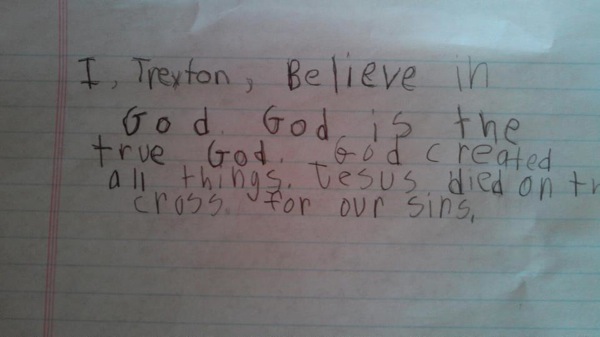 I, Trexton, Believe in
God. God is the
true God. God created
all things. Jesus died on th
cross. for our sins.